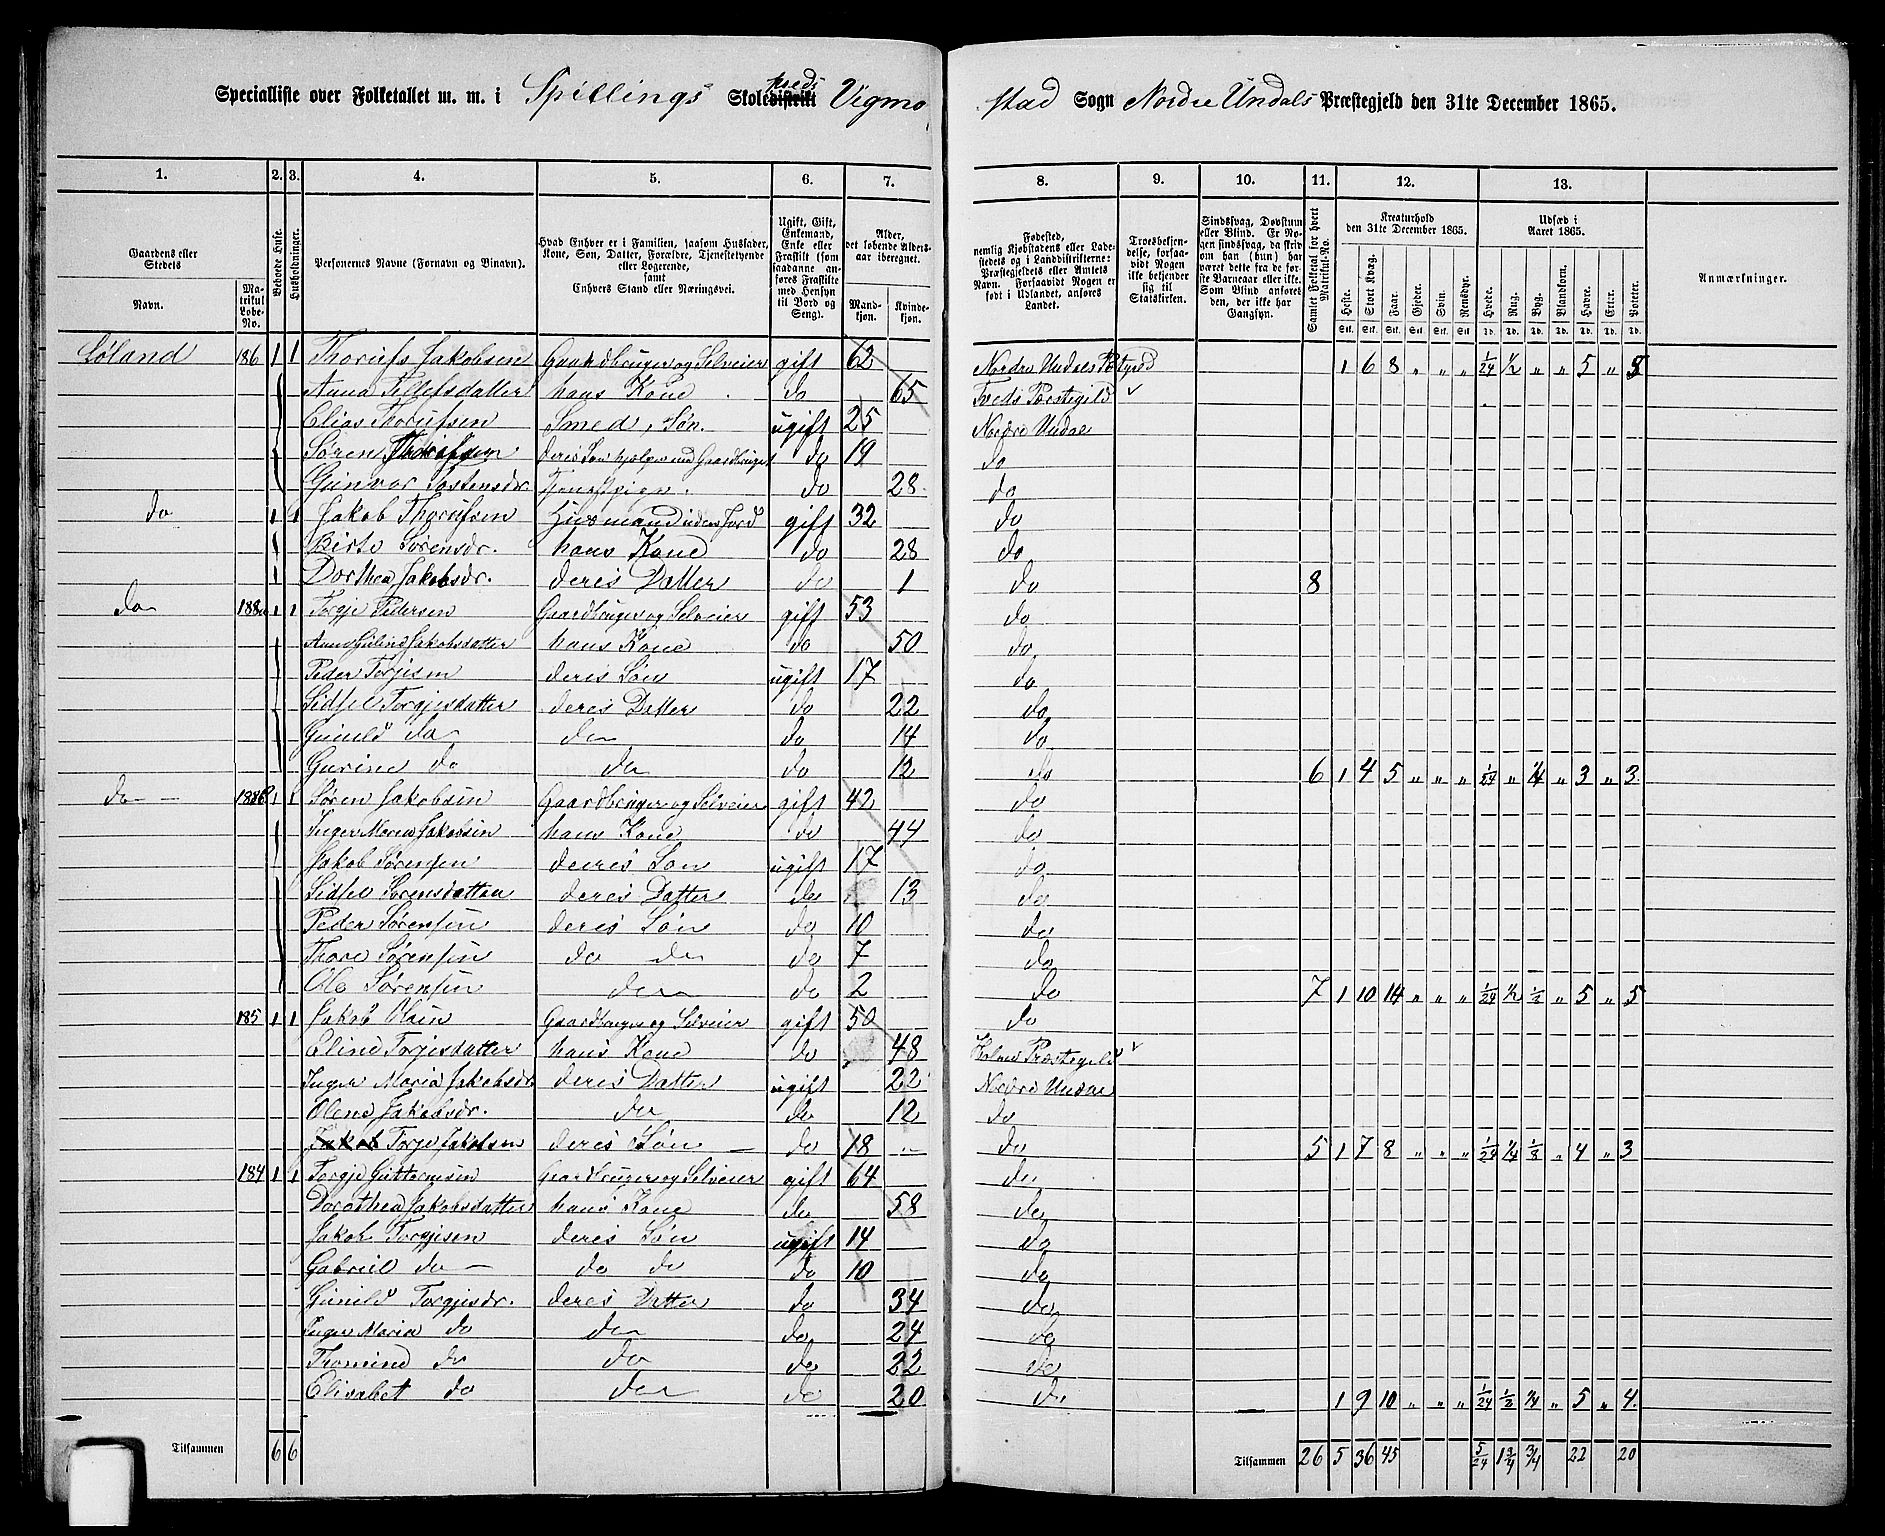 Specialliste over Folketallet m. m. i Spillings Skolekreds Vigmo- stad Sogn Nordre Undals Præstegjeld den 31te December 1865.
1. 2. 3. 4. 5. 6. 7. 8. 9. 10. 11. 12. 13.
Gaardens eller Stedets Navn. Matrikul Løbe-No. Beboede Huse. Husholdninger. Personernes Navne (Fornavn og Binavn). Hvad Enhver er i Familien, saasom Husfader, Kone, Søn, Datter, Forældre, Tjenestetyende eller Logerende, samt Enhvers Stand eller Næringsvei. Ugift, Gift, Enkemand, Enke eller Fraskilt (som saadanne anføres Fraskilte med Hensyn til Bord og Seng). Alder, det løbende Aldersaar iberegnet. Mandkjøn. Kvindekjøn.
Fødested, nemlig Kjøbstadens eller Ladestedets og i Landdistrikterne: Præstegjeldets eller Amtets Navn. Forsaavidt Nogen er født i Udlandet, anføres Landet. Troesbekjendelse, forsaavidt Nogen ikke bekjender sig til Statskirken. Sindssvag, Døvstum eller Blind. Er Nogen sindssvag, da skriv om han (hun) har været dette fra de første Barneaar eller ikke. Som Blind anføres den, der ikke har Gangsyn. Samlet Folketal for hvert Matrikul-No. Kreaturhold den 31te December 1865. Heste. Stort Kvæg. Faar. Gjeder. Svin. Rensdyr. Udsæd i Aaret 1865. Hvede. Rug. Byg. Blandkorn. Havre. Erter. Poteter. Anmærkninger.
Søland 186 1 1 Thorufs Jakobsen Gaardbruger og Selveier gift 62 Nordre Undals 1 6 8 " " " 1/24 1/2 " " 5 "
Anna Tellefsdatter hans Kone do 65 Tveds Præstegjeld
Elias Thorufsen Smed, Søn. ugift 25 Nordre Undal
Søren Thorufsen deres Søn hjelper med Gaardbruget do 19 do
Gunvor Tostensdr. Tjenestpige. do 28 do
do 1 1 Jakob Thorufsen Husmand uden Jord gift 32 do
Birte Sørensdr. hans Kone do 28 do
Dorthea Jakobsdr. deres Datter do 1 do 8
do 188a 1 1 Torgje Pedersen Gaardbruger og Selveier gift 53 do
Jakobsdatter hans Kone do 50 do
Peder Torgisen deres Søn ugift 17 do
Sidsel Torgjesdatter deres Datter do 22 do
Gunild do do do 14 do
Gurine do do do 12 do 6 1 4 5 " " " 1/24 " 1/4 " 3 " 3
do 188b 1 1 Søren Jakobsen Gaardbruger og Selveier gift 42 do
Inger Maria Jakobsen hans Kone do 44 do
Jakob Sørensen deres Søn ugift 17 do
Sidsel Sørensdatter deres Datter do 13 do
Peder Sørensen deres Søn do 10 do
Thore Sørensen do do do 7 do
Ole Sørensen do do 2 do 7 1 10 14 " " " 1/24 1/2 1/2 " 5 " 5
185 1 1 Jakob Olsen Gaardbruger og Selveier gift 50 do
Eline Torgjesdatter hans Kone do 48 Præstegjeld
Inger Maria Jakobsdr. deres Datter ugift 22 Nordre Undal
Olene Jakobsdr. do do 12 do
Torje Jakobsen deres Søn do 18 " do 5 1 7 8 " " " 1/24 1/4 1/8 " 4 " 3
184 1 1 Torgje Guttormsen Gaardbruger og Selveier gift 64 do
Dorothea Jakobsdatter hans Kone do 58 do
Jakob Torgjisen deres Søn ugift 14 do
Gabriel do do do do 10 do
Gunild Torgjesdr. deres Datter do 34 do
Inger Maria do do do 24 do
Tromine do do do 22 do
Elisabet do do do 20 do 1 9 10 " " " 1/24 1/2 1/4 " 5 " 4
Tilsammen 6 6 Tilsammen 26 5 36 45 5/24 1 3/4 3/4 22 20